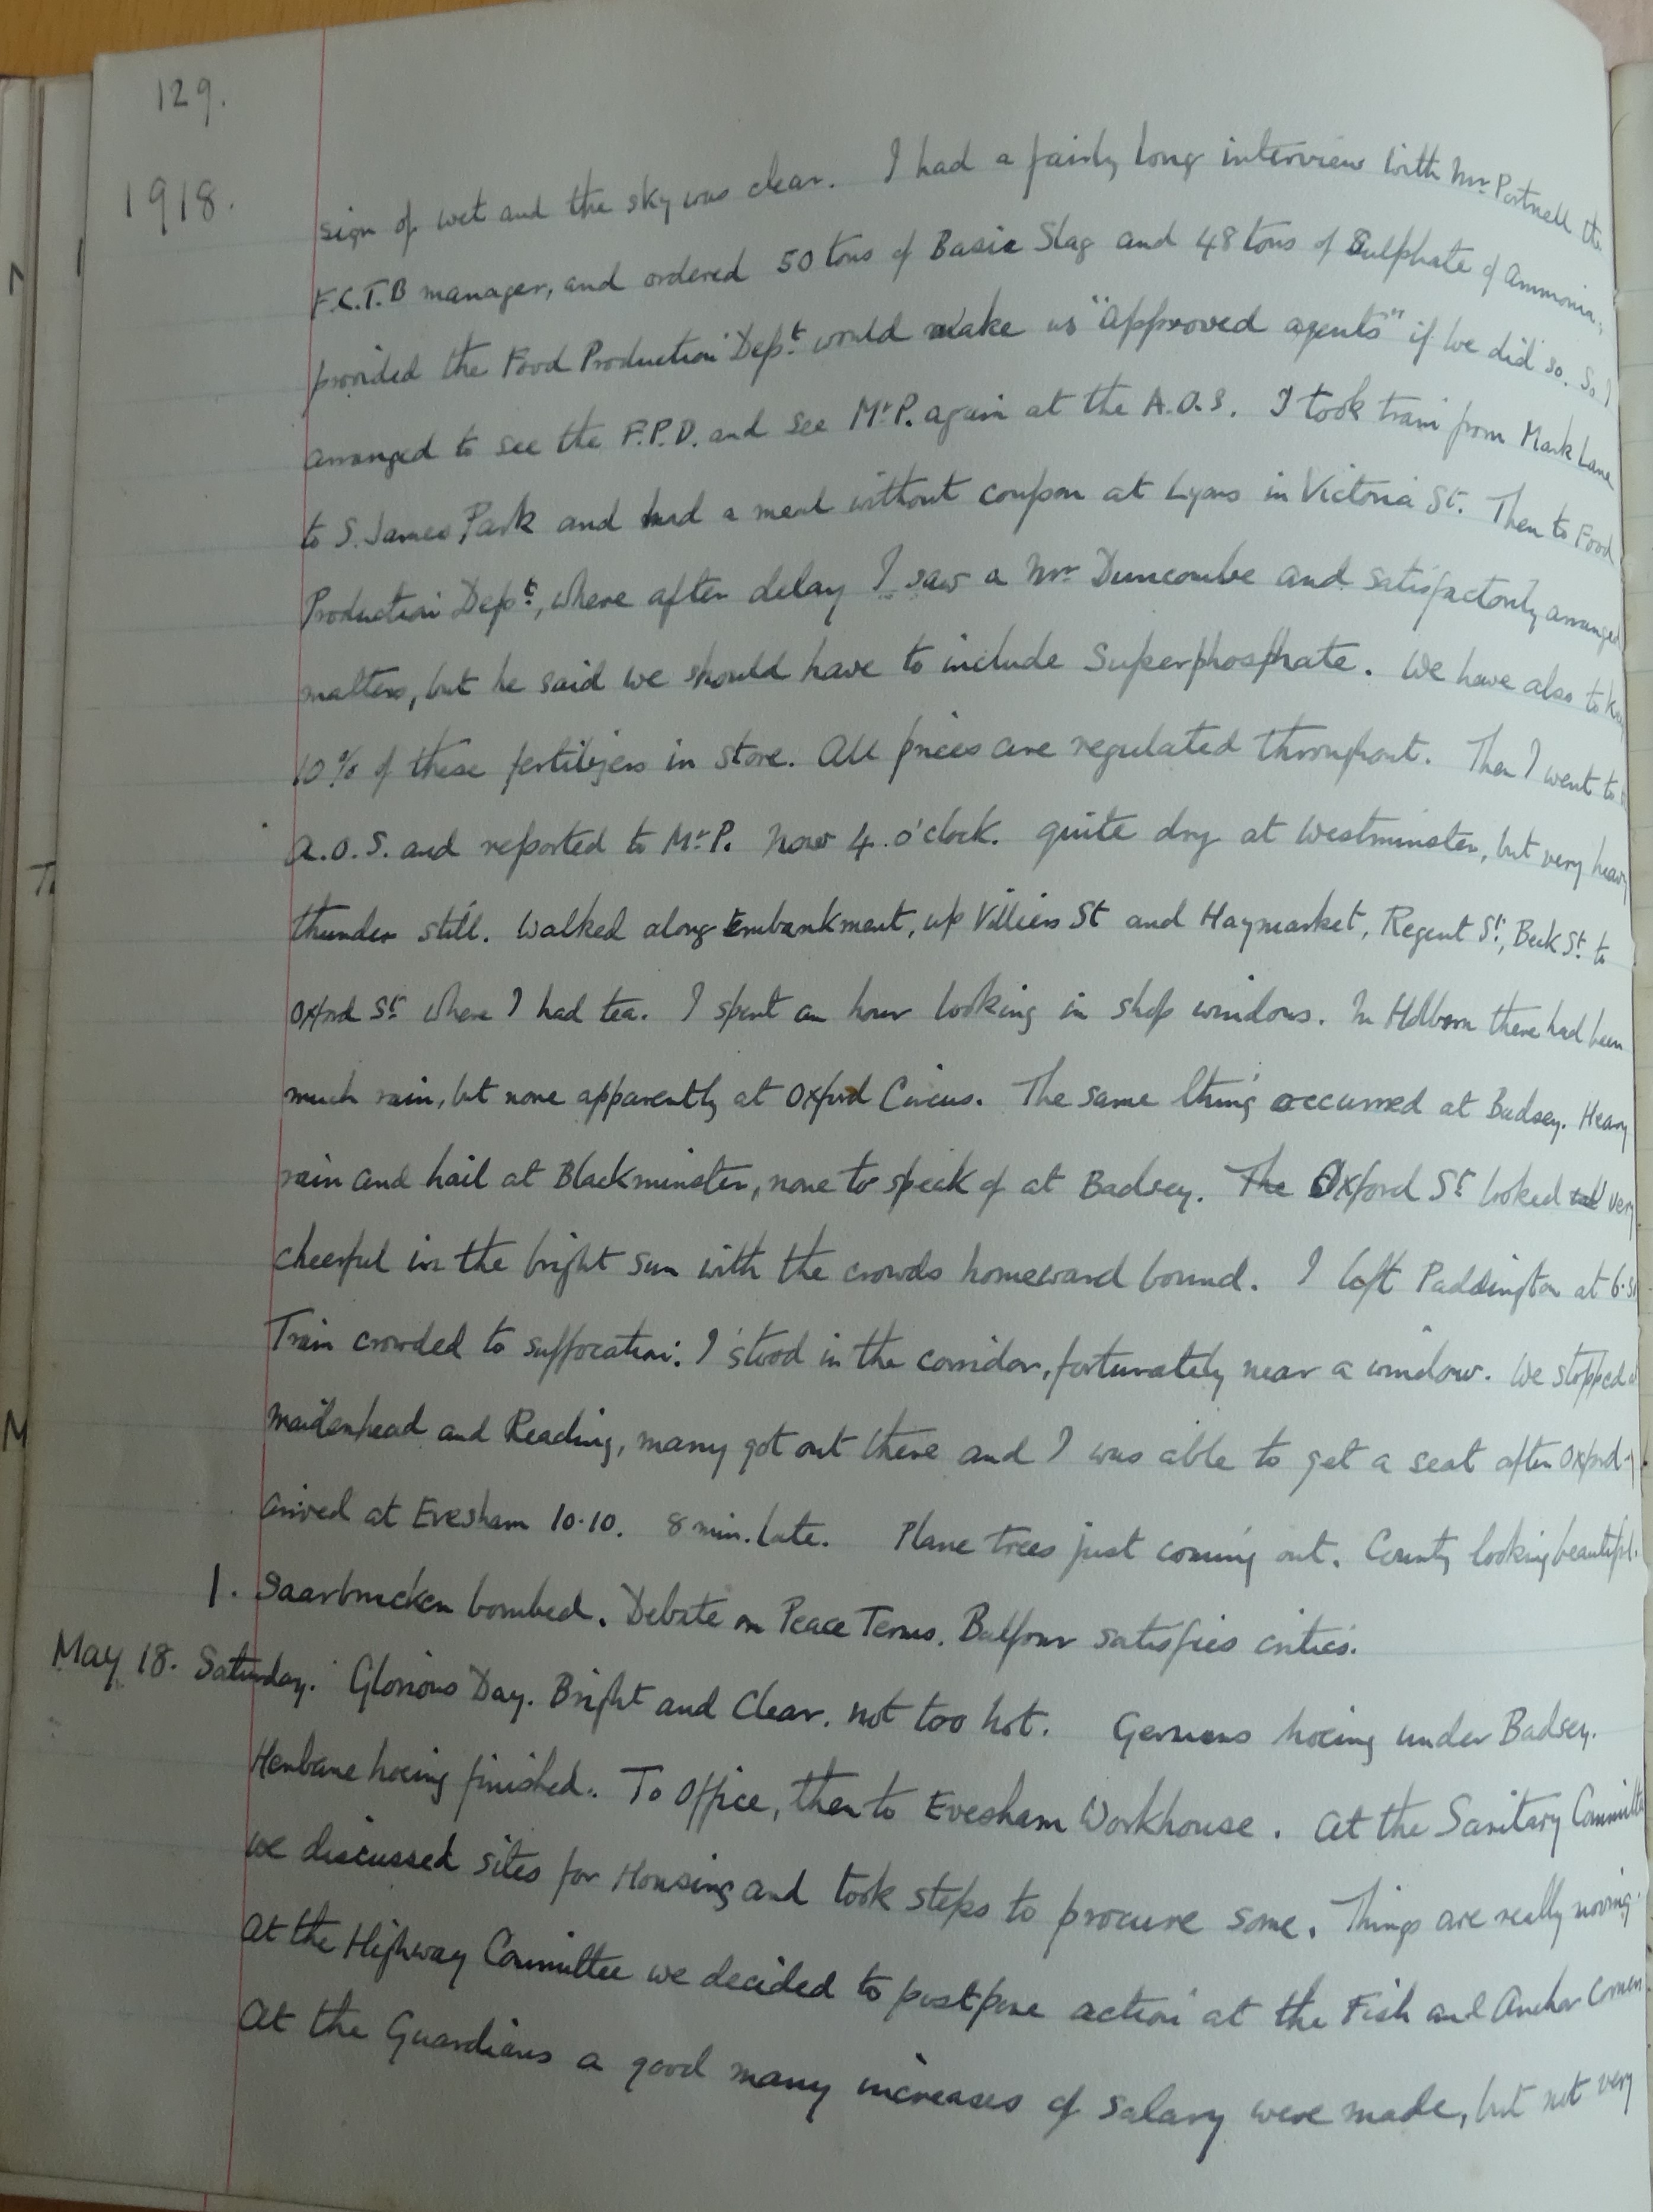 129.
1918.
sign of wet and the sky was clear. I had a fairly long interview with Mr Portnell the
F.C.T.B manager, and ordered 50 tons of Basic Slag and 48 tons of Sulphate of Ammonia,
provided the Food Production Dept. would make us "approved agents" if we did so. So I
arranged to see the F.P.D. and see Mr P. again at the A.O.S. I took train from Mark Lane
to S. James Park and had a meal without coupon at Lyons in Victoria St. Then to Food
Production Dept., where after delay I saw a Mr Duncombe and satisfactorily arranged
matters, but he said we should have to include Superphosphate. We have also to keep
10% of these fertilizers in store. All prices are regulated throughout. Then I went to
A.O.S. and reported to Mr P. Now 4 o'clock. quite dry at Westminster, but very heavy
thunder still. Walked along Embankment, up Villiers St and Haymarket, Regent St., Beak St. to
Oxford St. where I had tea. I spent an hour looking in shop windows. In Holborn there had been
much rain, but none apparently at Oxford Circus. The same thing occurred at Badsey. Heavy
rain and hail at Blackminster, none to speak of at Badsey. The Oxford St looked very
cheerful in the bright sun with the crowds homeward bound. I left Paddington at
Train crowded to suffocation. I stood in the corridor, fortunately near a window. We stopped at
Maidenhead and Reading, many got out there and I was able to get a seat after Oxford.
Arrived at Evesham 10.10. 8 min. late. Plane trees just coming out. County looking beautiful.
1. Saarbrucken bombed. Debate on Peace Terms. Balfour satisfies critics.
May 18. Saturday. Glorious Day. Bright and Clear. not too hot. Germans hoeing under Badsey.
Henbane hoeing finished. To Office, then to Evesham Workhouse. At the Sanitary Committee
we discussed sites for Housing and took steps to procure some. Things are really moving.
At the Highway Committee we decided to postpone action at the Fish and Anchor corner.
At the Guardians a good many increases of salary were made, but not very